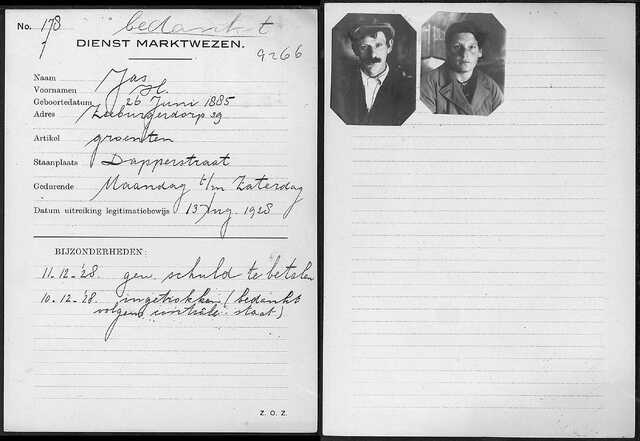 No. 178 bedankt
7
DIENST MARKTWEZEN.
9266
Naam Jas
Voornamen H.
Geboortedatum 26 Juni 1885
Adres Zeeburgerdorp 39
Artikel groenten
Staanplaats Dapperstraat
Gedurende Maandag t/m Zaterdag
Datum uitreiking legitimatiebewijs 13 Aug. 1928
BIJZONDERHEDEN:
11-12-'28. gew. schuld te betalen
10-12-'28. ingetrokken (bedankt
volgens controle staat)
Z. O. Z.